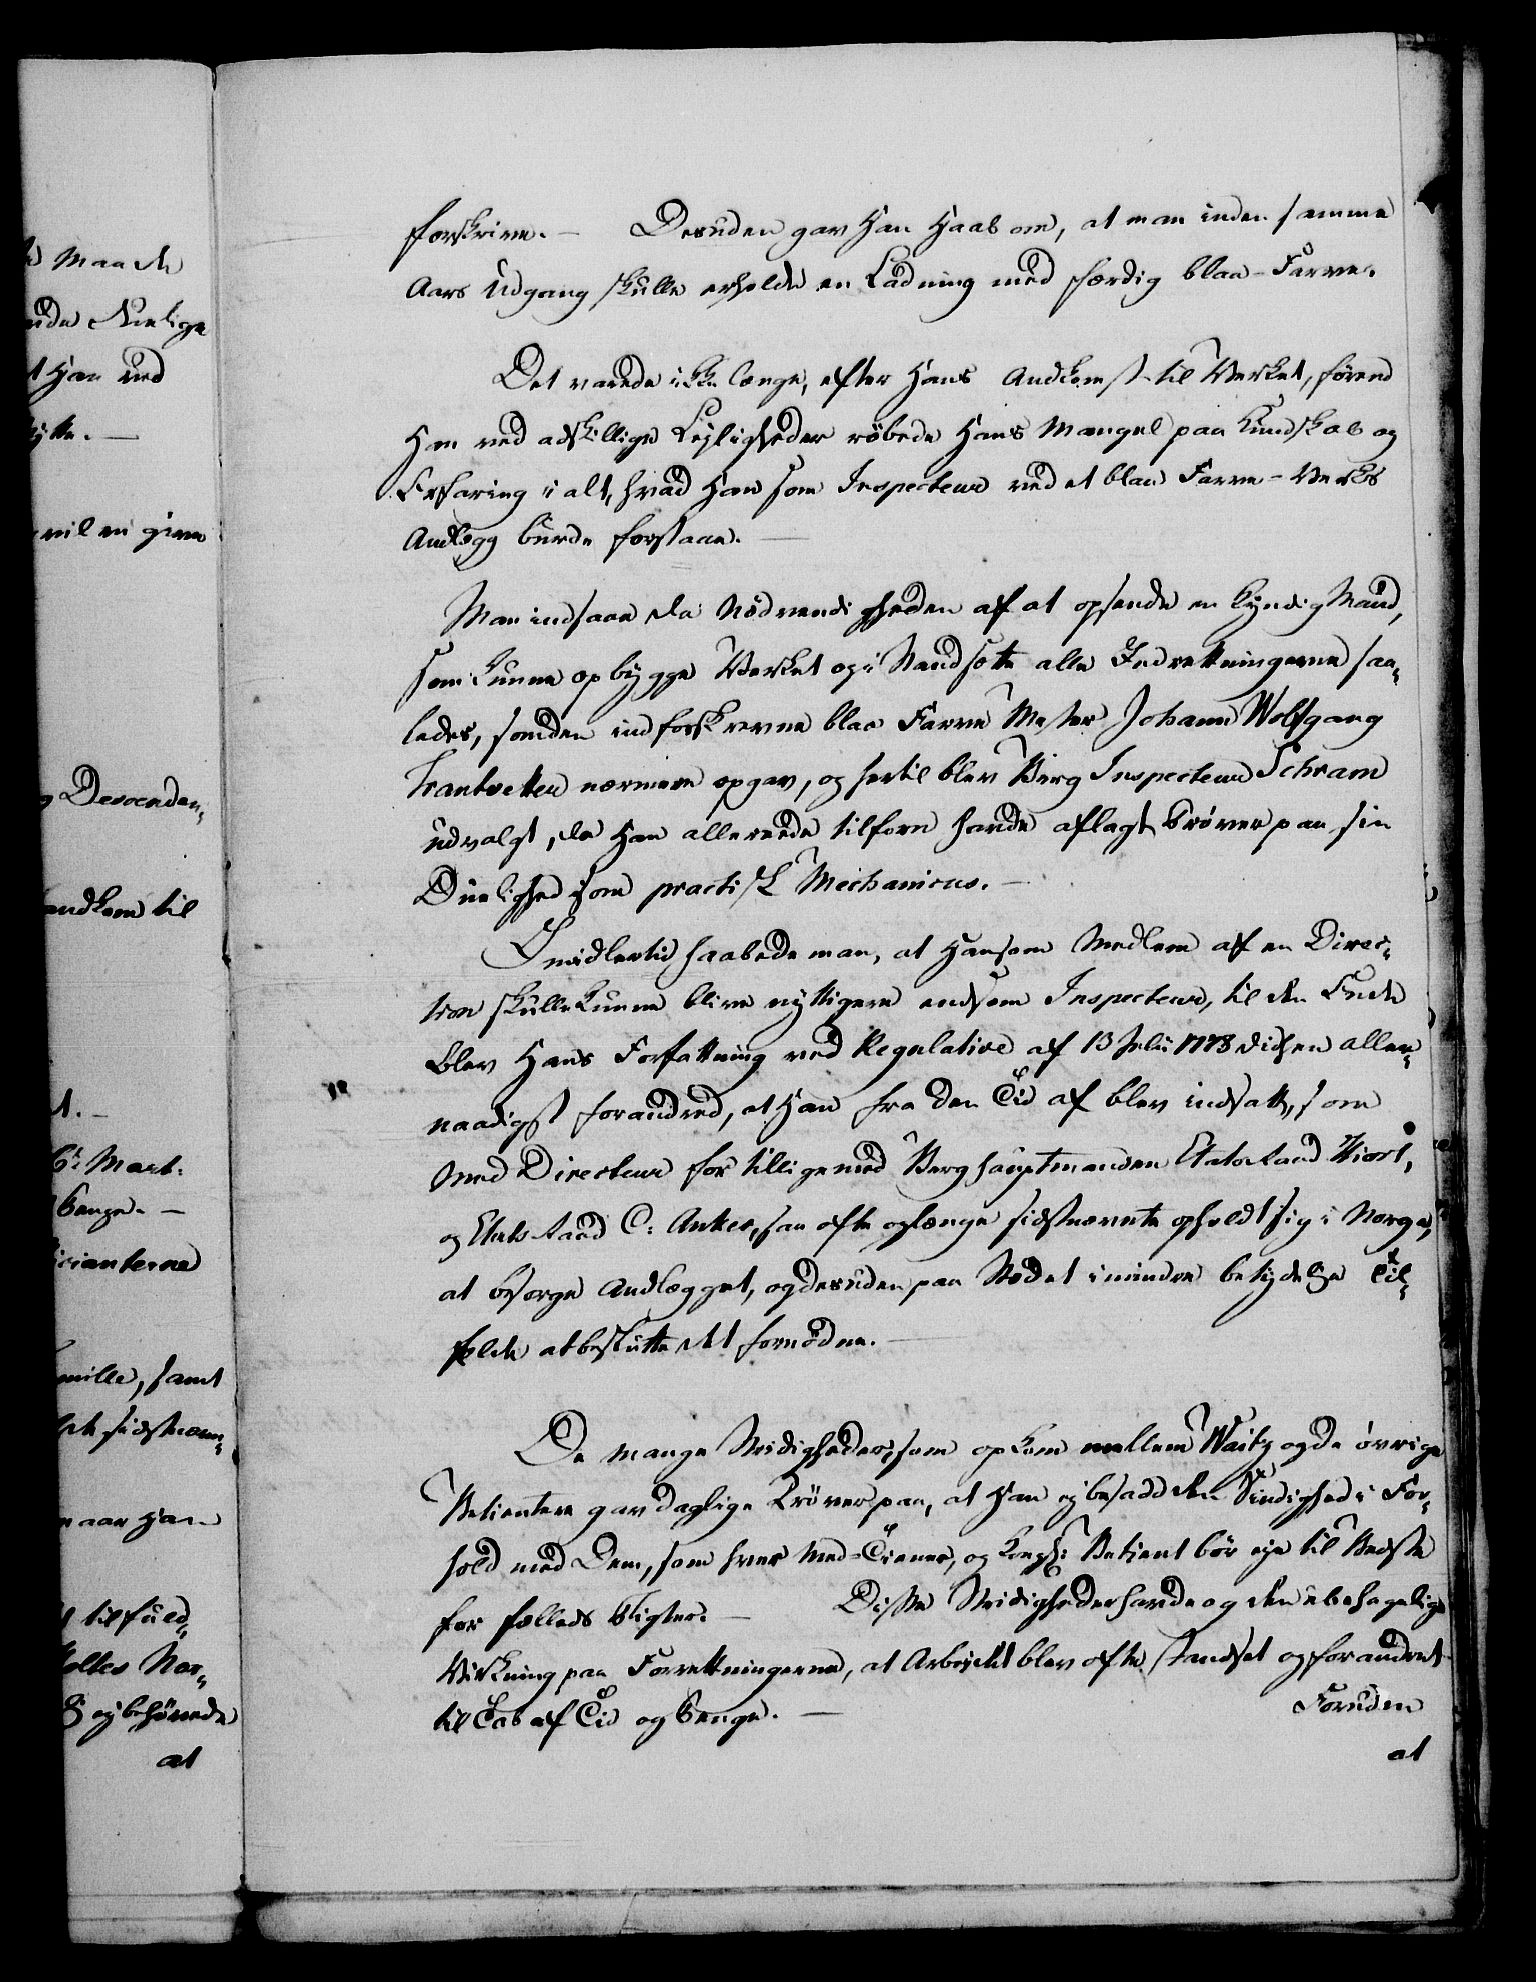 Maade
Han ved
vil en give
Descenden-
andkom til
6te Mart.
Penge. —
cianterne
milie, samt
sidstnævn-
naar Han
til fuld-
Holtes Nor-
ej behøvede
at
forskrive. — Desuden gav Han Haab om, at man inden samme
Aars Udgang skulle erholde en Ladning med færdig blaa-Farve.
Det varede ikke længe, efter Hans Andkomst til Verket, førend
Han ved adskillige Lejligheder røbede Hans Mangel paa Kundskab og
Erfaring i alt, hvad Han som Inspecteur ved et blaa Farve-Verks
Andlegg burde forstaae. —
Man indsaae da Nødvendigheden af at opsende en kyndig Mand,
som kunne opbygge Verket og i Standsætte alle Indretningerne saa-
ledes, som den indforskrevne blaa Farve Mester Johann Wolfgang
Trantvetter nærmere opgav, og hertil blev Berg Inspecteur Schram
udvalgt, da Han allerede tilforn havde aflagt Prøver paa sin
Duelighed som practisk Mechanicus. —
Imidlertid haabede man, at Han som Medlem af en Direc-
tion skulle kunne blive nyttigere end som Inspecteur, til den Ende
blev Hans Forfatning ved Regulative af 13 Julii 1778 vidsen aller-
naadigst forandred, at Han fra den Tid af blev indsatt, som
Med Directeur for tilligemed Berghauptmanden Etatsraad Hiort,
og Etatsraad C: Anker, saa ofte og længe sidstnævnte opholdt sig i Norge,
at besørge Andlægget, og desuden paa Stædet i mindre betydelige Til-
fælde at beslutte det fornødne. —
De mange Stridigheder, som opkom mellem Waitz og de øvrige
Betientere gav daglige Prøver paa, at Han ej besadd den Sindighed i For-
hold med Dem, som hver Med-Tiener, og Kongl: Betient bør eje til Bedste
for fælleds Pligter. — Disse Stridigheder havde og den ubehagelige
Virkning paa Forretningerne, at Arbejdet blev ofte standset og forandret
til Tab af Tid og Penge. — Foruden
at